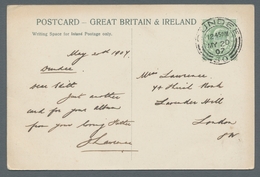 POSTCARD – GREAT BRITAIN & IRELAND
Writing Space for Inland Postage only.
DUNDEE
MY 20
07
May 20th 1907
Dundee
Dear
Just another
card for your album
from your loving Father
J Lawrence
Miss Lawrence
Lavender Hill
London
SW